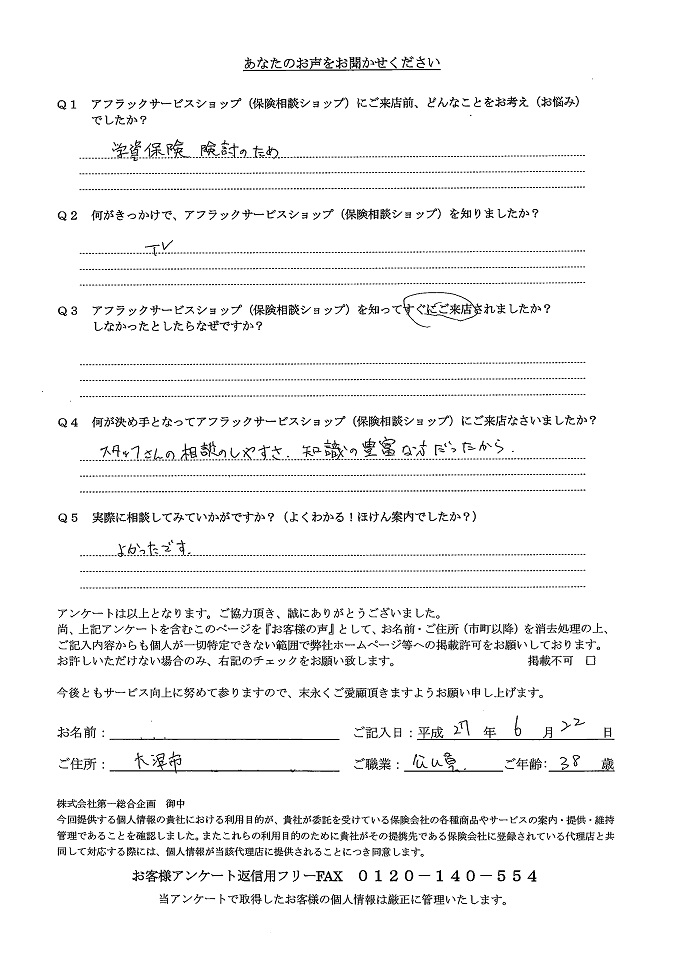 あなたのお声をお聞かせください
Q1 アフラックサービスショップ（保険相談ショップ）にご来店前、どんなことをお考え（お悩み）
でしたか？
学資保険 険討のため
Q2 何がきっかけで、アフラックサービスショップ（保険相談ショップ）を知りましたか？
TV
Q3 アフラックサービスショップ（保険相談ショップ）を知ってすぐにご来店されましたか？
しなかったとしたらなぜですか？
Q4 何が決め手となってアフラックサービスショップ（保険相談ショップ）にご来店なさいましたか？
スタッフさんの相談のしやすさ、知識の豊富な方だったから.
Q5 実際に相談してみていかがですか？（よくわかる！ほけん案内でしたか？）
よかったです.
アンケートは以上となります。ご協力頂き、誠にありがとうございました。
尚、上記アンケートを含むこのページを『お客様の声』として、お名前・ご住所（市町以降）を消去処理の上、
ご記入内容からも個人が一切特定できない範囲で弊社ホームページ等への掲載許可をお願いしております。
お許しいただけない場合のみ、右記のチェックをお願い致します。 掲載不可 □
今後ともサービス向上に努めて参りますので、末永くご愛顧頂きますようお願い申し上げます。
お名前： ご記入日：平成 27 年 6 月 22 日
ご住所： 大津市 ご職業： ご年齢: 38 歳
株式会社第一総合企画 御中
今回提供する個人情報の貴社における利用目的が、貴社が委託を受けている保険会社の各種商品やサービスの案内・提供・維持
管理であることを確認しました。またこれらの利用目的のために貴社がその提携先である保険会社に登録されている代理店と共
同して対応する際には、個人情報が当該代理店に提供されることにつき同意します。
お客様アンケート返信用フリーFAX 0120－140－554
当アンケートで取得したお客様の個人情報は厳正に管理いたします。